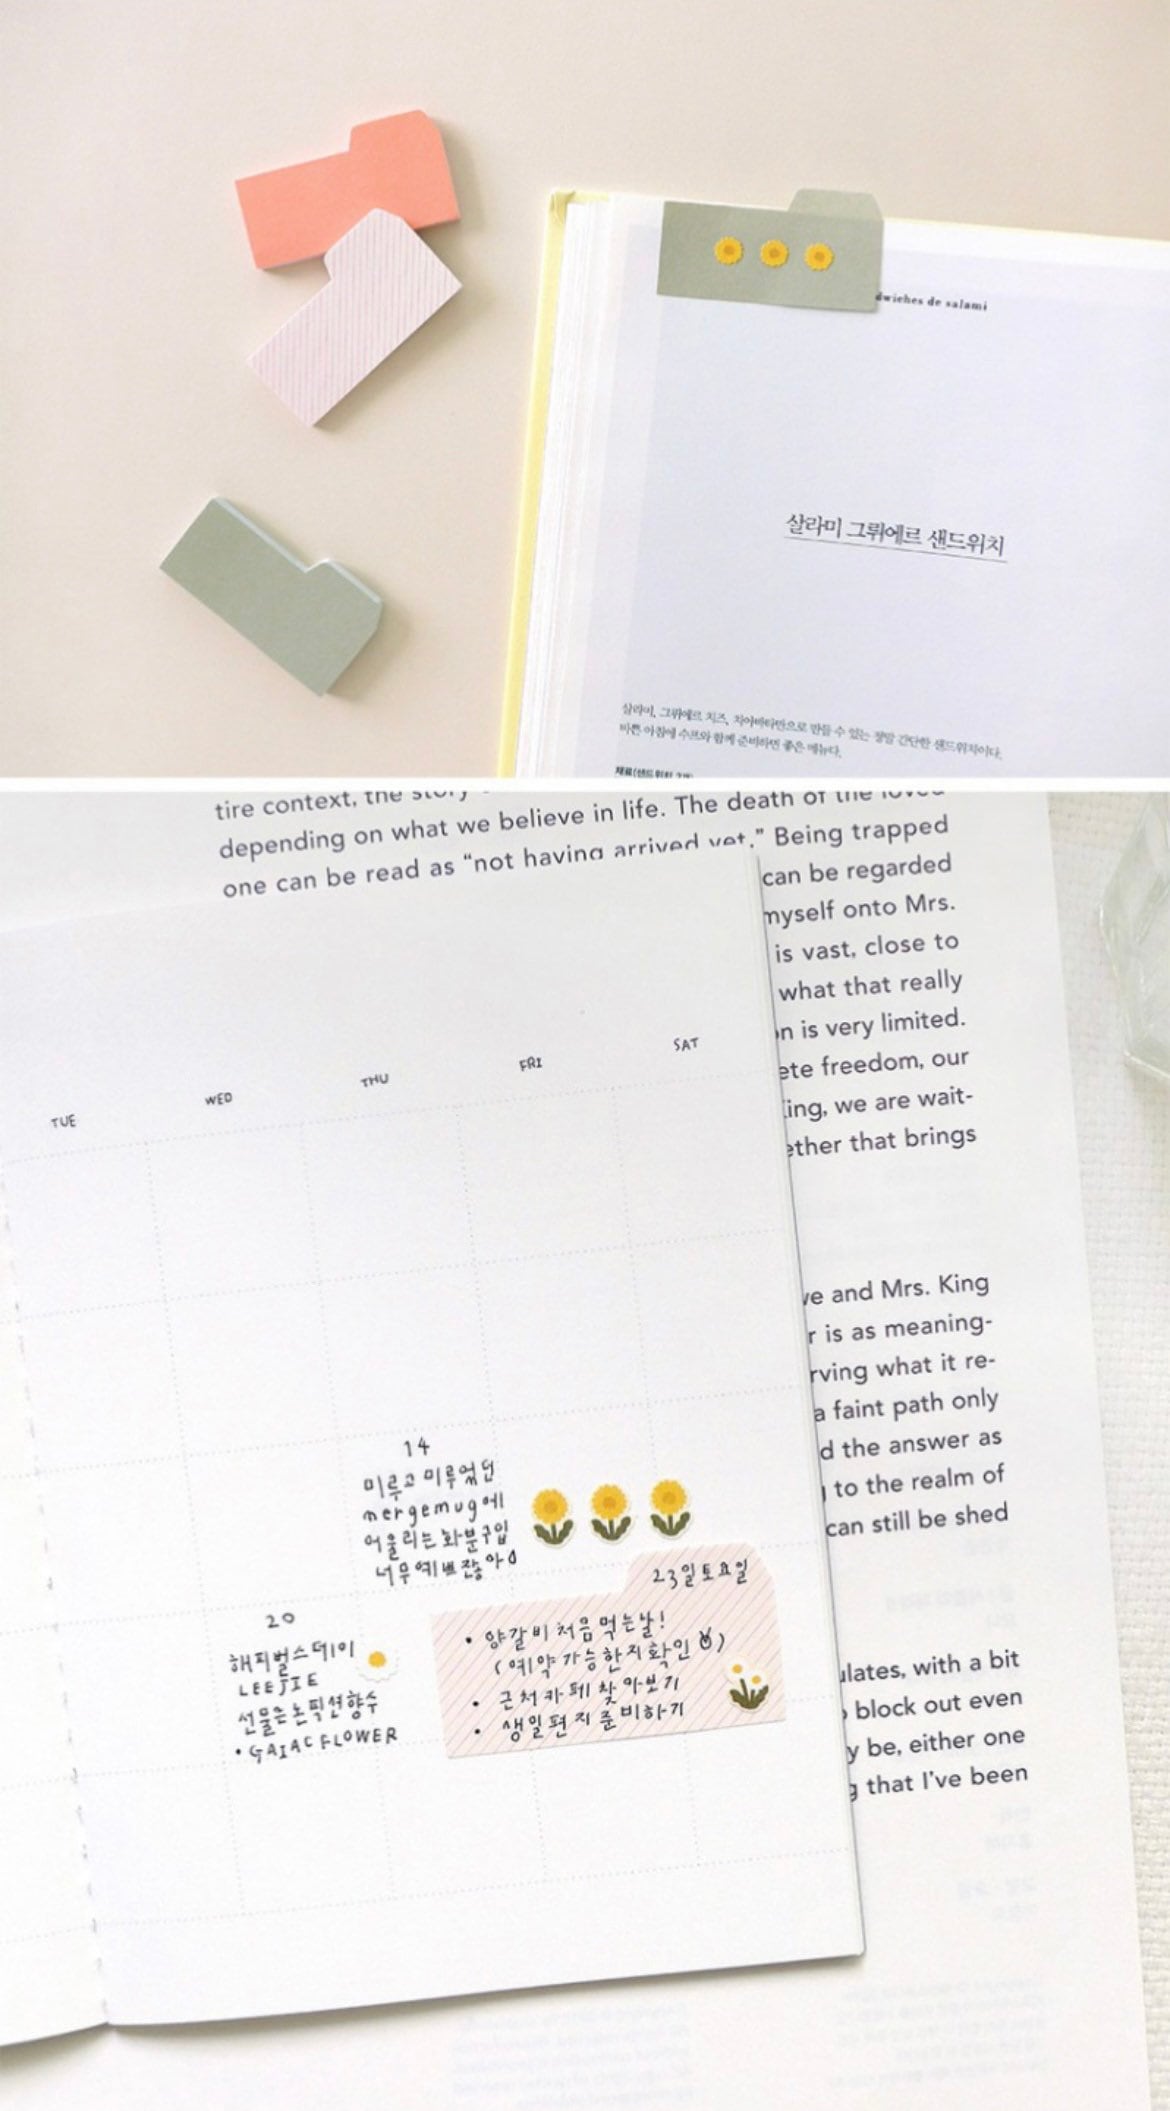 dwiches de salami
살라미 그뤼에르 샌드위치
살라미, 그뤼에르 치즈, 치아바타만으로 만들 수 있는 정말 간단한 샌드위치이다.
바쁜 아침에 수프와 함께 준비하면 좋은 메뉴다.
tire context, the story
depending on what we believe in life. The death of the loved
one can be read as “not having arrived yet.” Being trapped
can be regarded
myself onto Mrs.
is vast, close to
what that really
n is very limited.
ete freedom, our
ing, we are wait-
ether that brings
ve and Mrs. King
r is as meaning-
rving what it re-
a faint path only
d the answer as
to the realm of
can still be shed
ulates, with a bit
block out even
y be, either one
g that I’ve been
TUE WED THU FRI SAT
14
미루고 미루었던
mergemug에
어울리는 화분구입
너무 예쁘잖아
20
해피벌스데이
LEEJIE
선물은 논픽션향수
• GAIAC FLOWER
23일토요일
• 양갈비 처음 먹는날!
(예약가능한지 확인)
• 근처카페 찾아보기
• 생일편지 준비하기